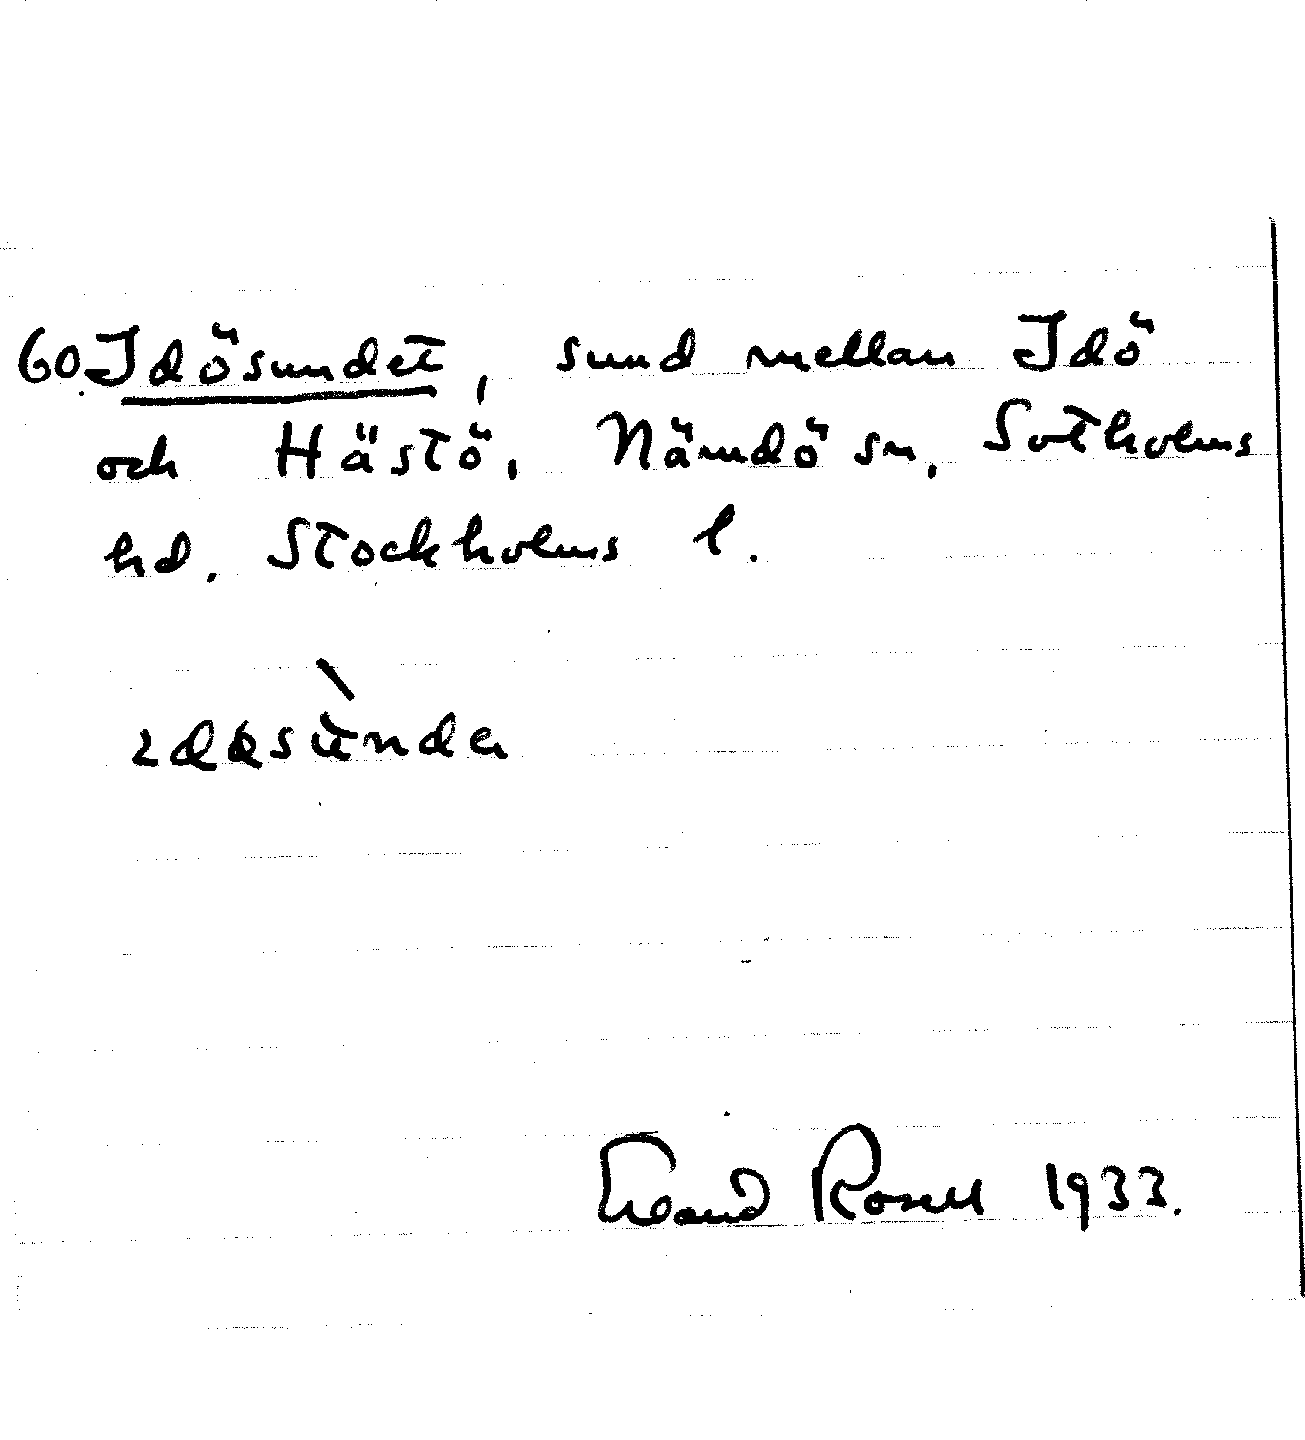 60. Idösundet, sund mellan Idö
och Hästö, Nämdö sn, Sotholms
hd. Stockholms l.
Erland Rosell 1933.